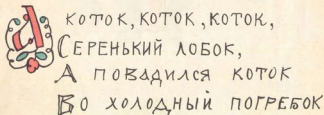 А КОТОК, КОТОК, КОТОК,
СЕРЕНЬКИЙ ЛОБОК,
А ПОВАДИЛСЯ КОТОК
ВО ХОЛОДНЫЙ ПОГРЕБОК